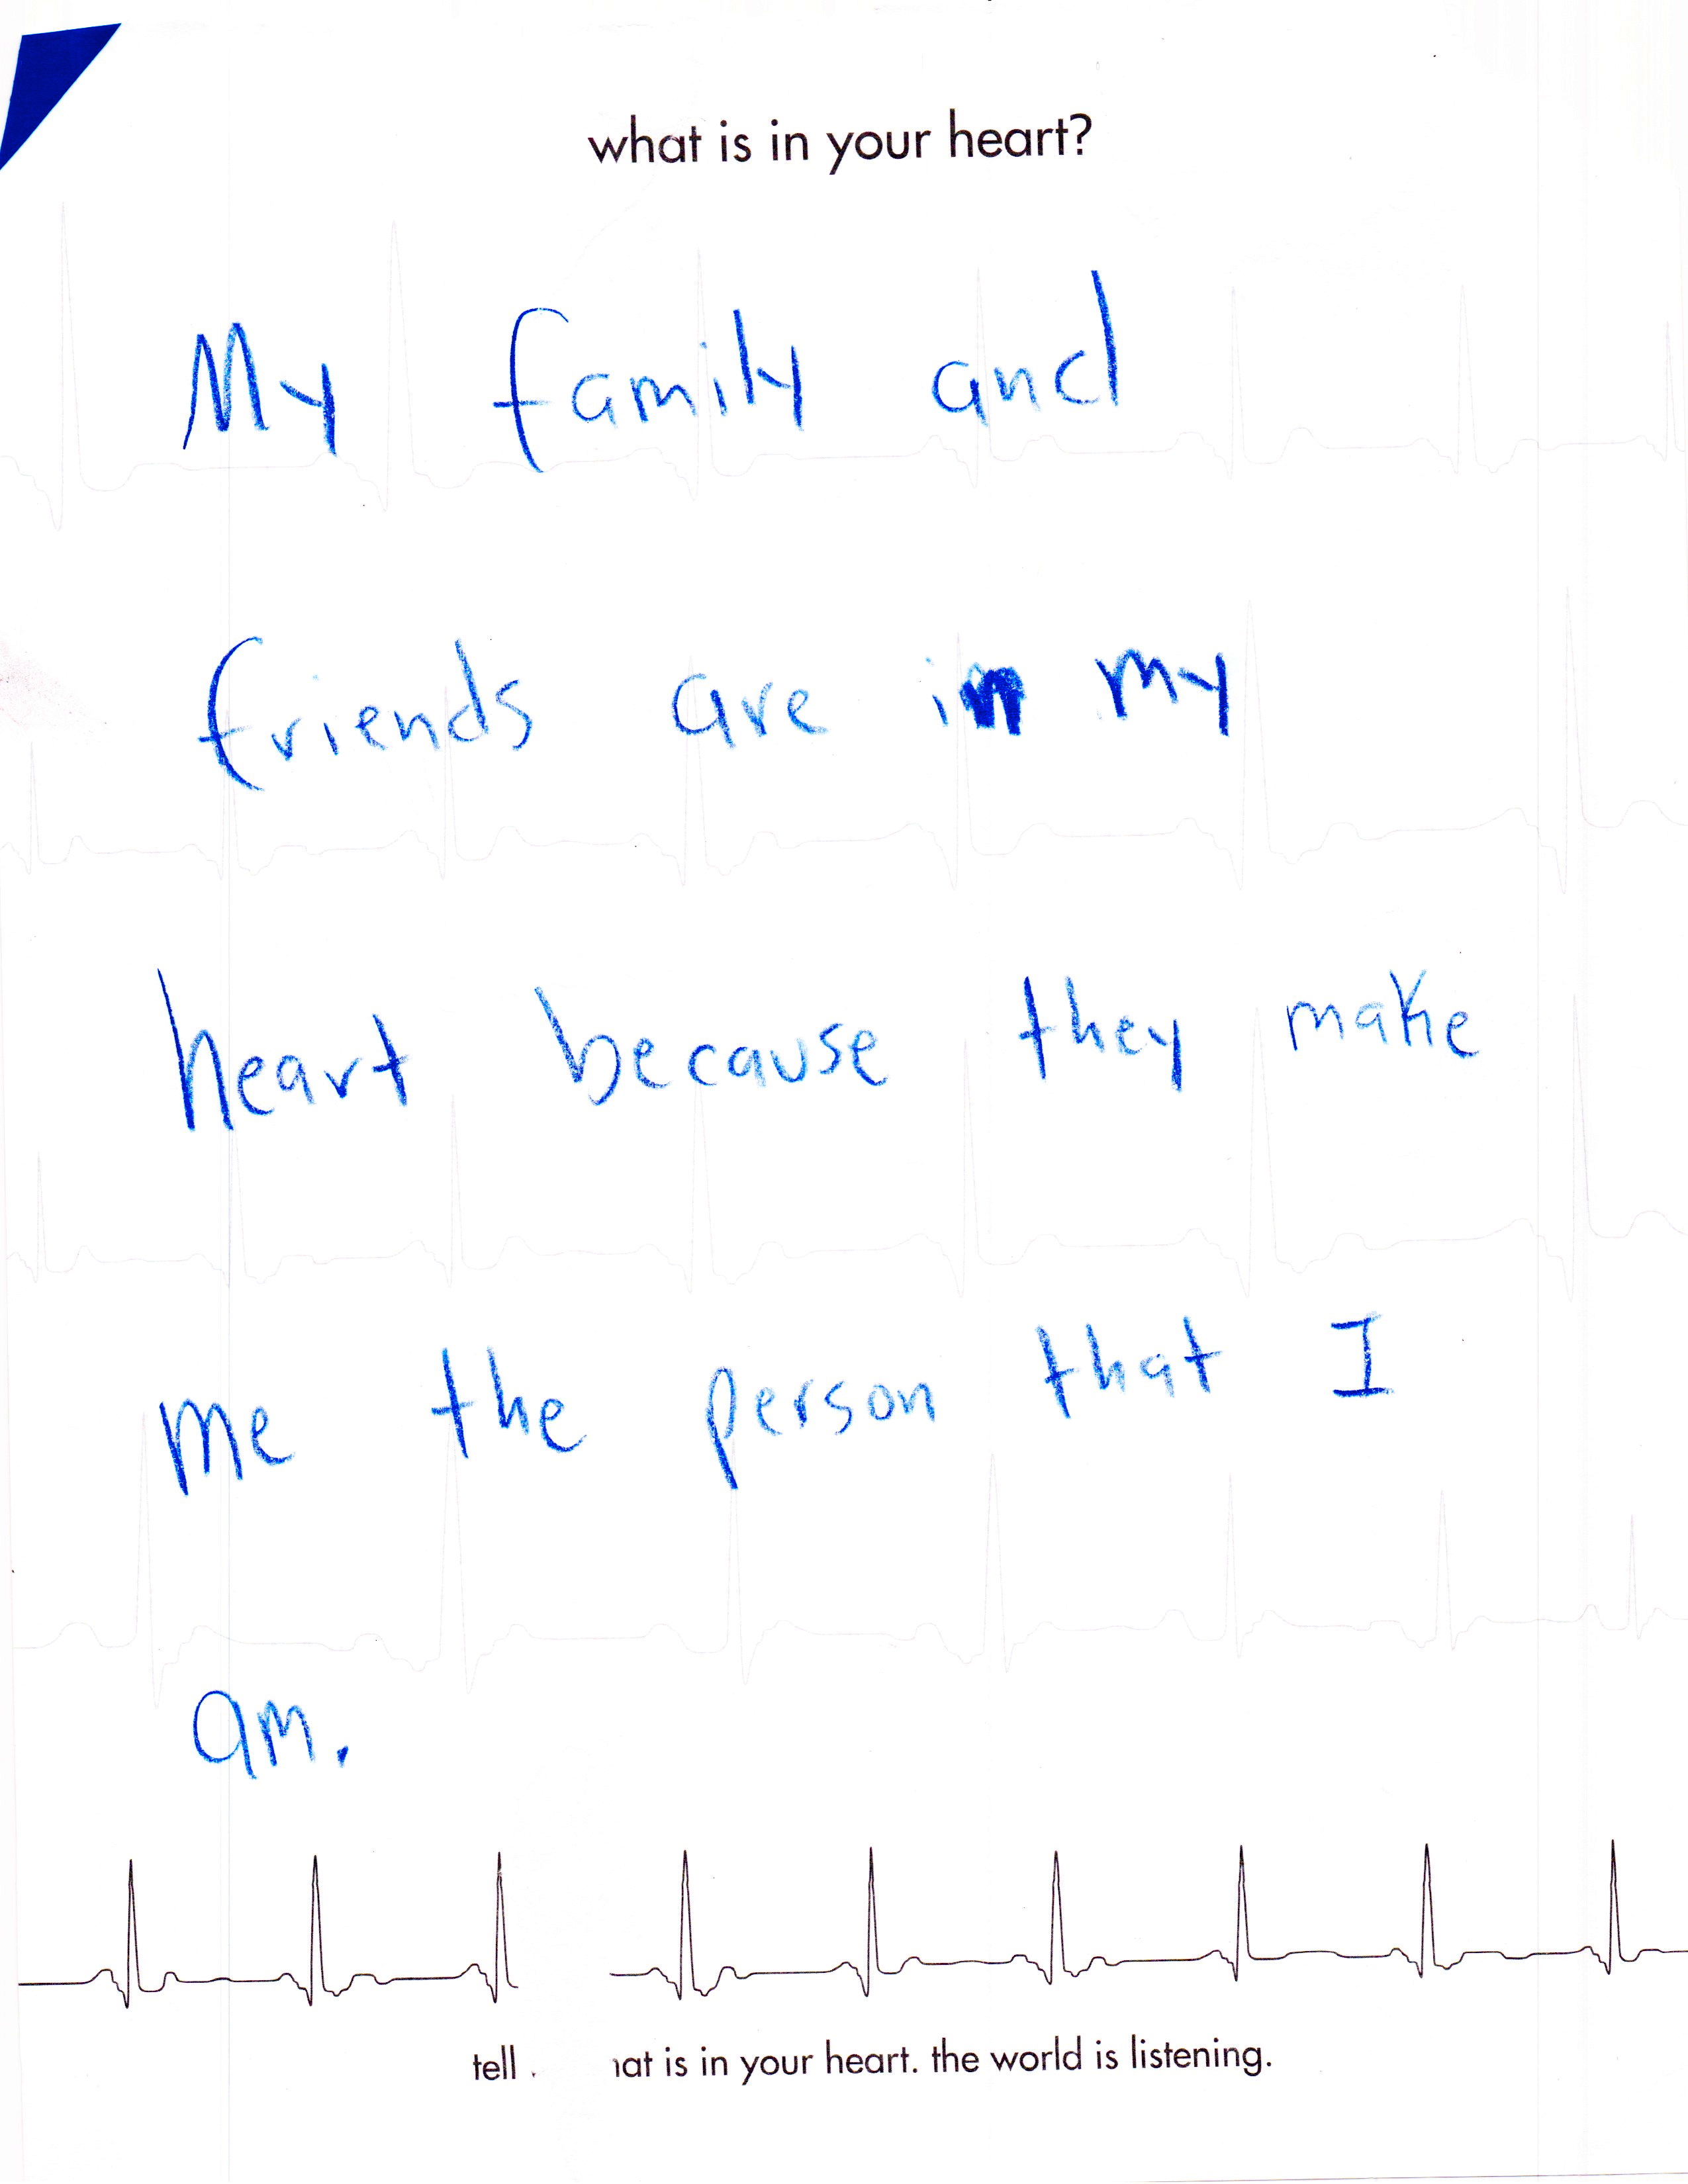 what is in your heart?
My family and
friends are in my
heart because they make
me the person that I
am.
tell
is in your heart. the world is listening.